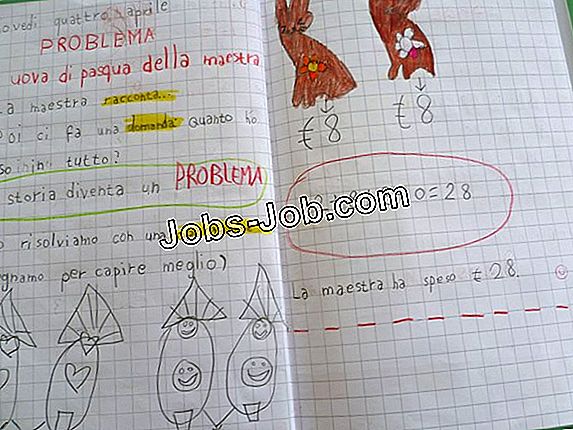 ovedì quattro aprile
PROBLEMA
uova di pasqua della maestra
a maestra racconta...
Poi ci fa una domanda: Quanto ho
so in tutto?
storia diventa un PROBLEMA
o risolviamo con una
gnamo per capire meglio)
€8 €8
0=28
La maestra ha speso € 28.
Jobs-Job.com